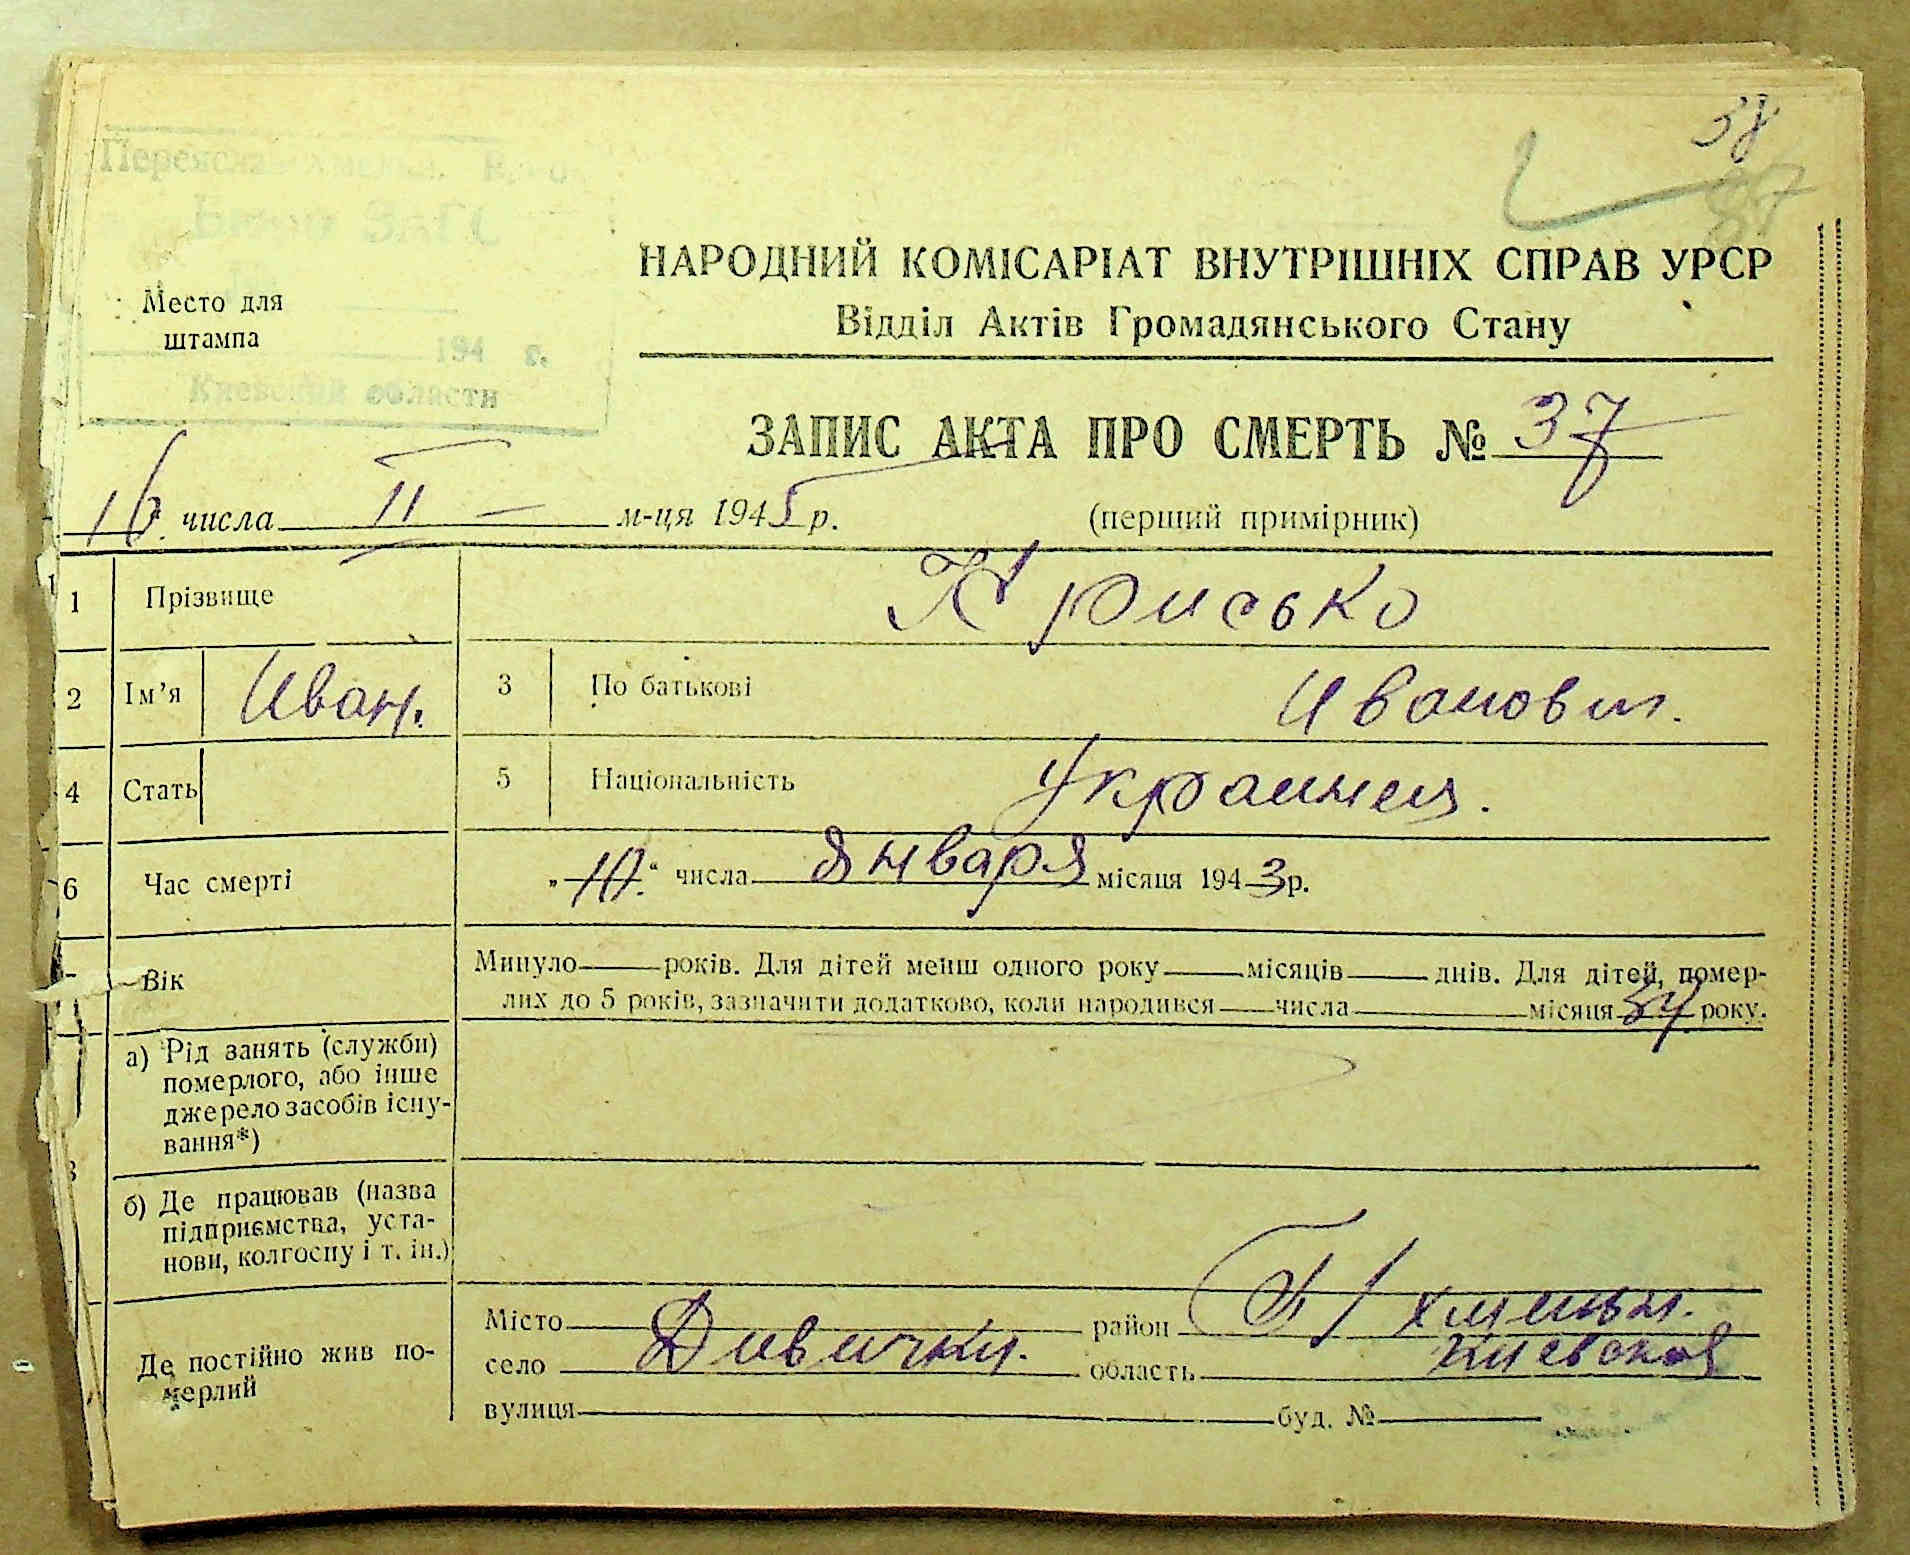 38
87
Бюро ЗАГС
194 г.
Киевской области
Место для
штампа
НАРОДНИЙ КОМІСАРІАТ ВНУТРІШНІХ СПРАВ УРСР
Відділ Актів Громадянського Стану
ЗАПИС АКТА ПРО СМЕРТЬ № 37
16 числа II м-ця 1945 р. (перший примірник)
1 Прізвище Крисько
2 Ім'я Иван. 3 По батькові Иванович.
4 Стать 5 Національність Украинец.
6 Час смерті „10“ числа Января місяця 1943 р.
Вік Минуло років. Для дітей менш одного року місяців днів. Для дітей, помер-
лих до 5 років, зазначити додатково, коли народився числа місяця року.
а) Рід занять (служби)
померлого, або інше
джерело засобів існу-
вання*)
б) Де працював (назва
підприємства, уста-
нови, колгоспу і т. ін.)
Де постійно жив по-
мерлий
Місто район П/Хмельн.
село Дивички. область Киевская
вулиця буд. №